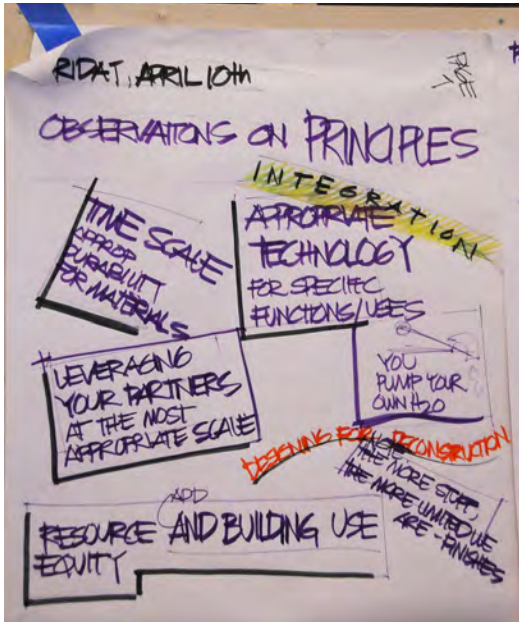 RIDAY, APRIL 10th
PAGE
1
OBSERVATIONS ON PRINCIPLES
INTEGRATION
TIME SCALE
APPROP
DURABILITY
FOR MATERIALS
APPROPRIATE
TECHNOLOGY
FOR SPECIFIC
FUNCTIONS/USES
LEVERAGING
YOUR PARTNERS
AT THE MOST
APPROPRIATE SCALE
YOU
PUMP YOUR
OWN H2O
DESIGNING FOR DECONSTRUCTION
THE MORE STUFF,
THE MORE LIMITED WE
ARE - FINISHES
ADD
RESOURCE AND BUILDING USE
EQUITY